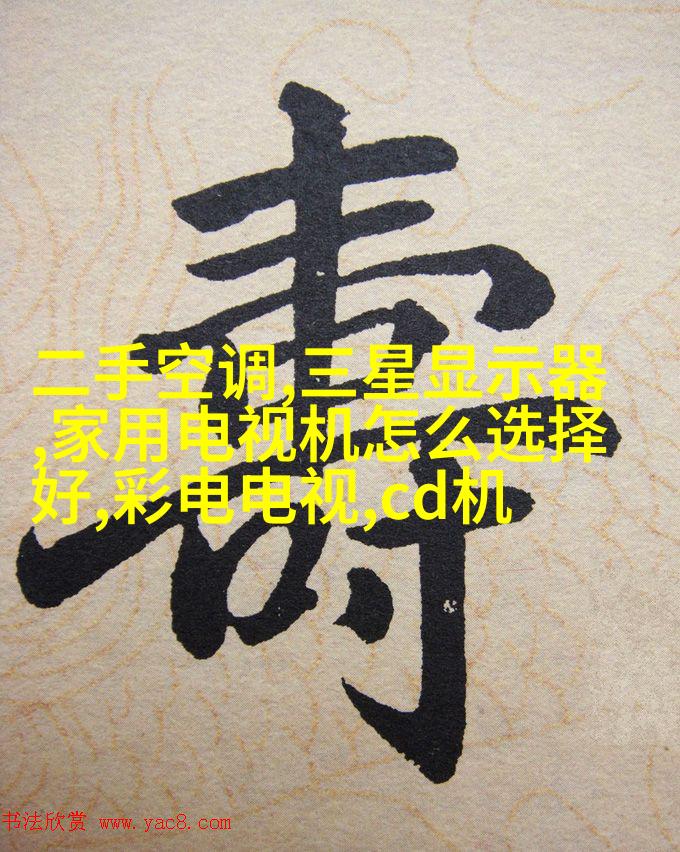 壽
二手空调,三星显示器
,家用电视机怎么选择
好,彩电电视,cd机
书法欣赏 www.yac8.com